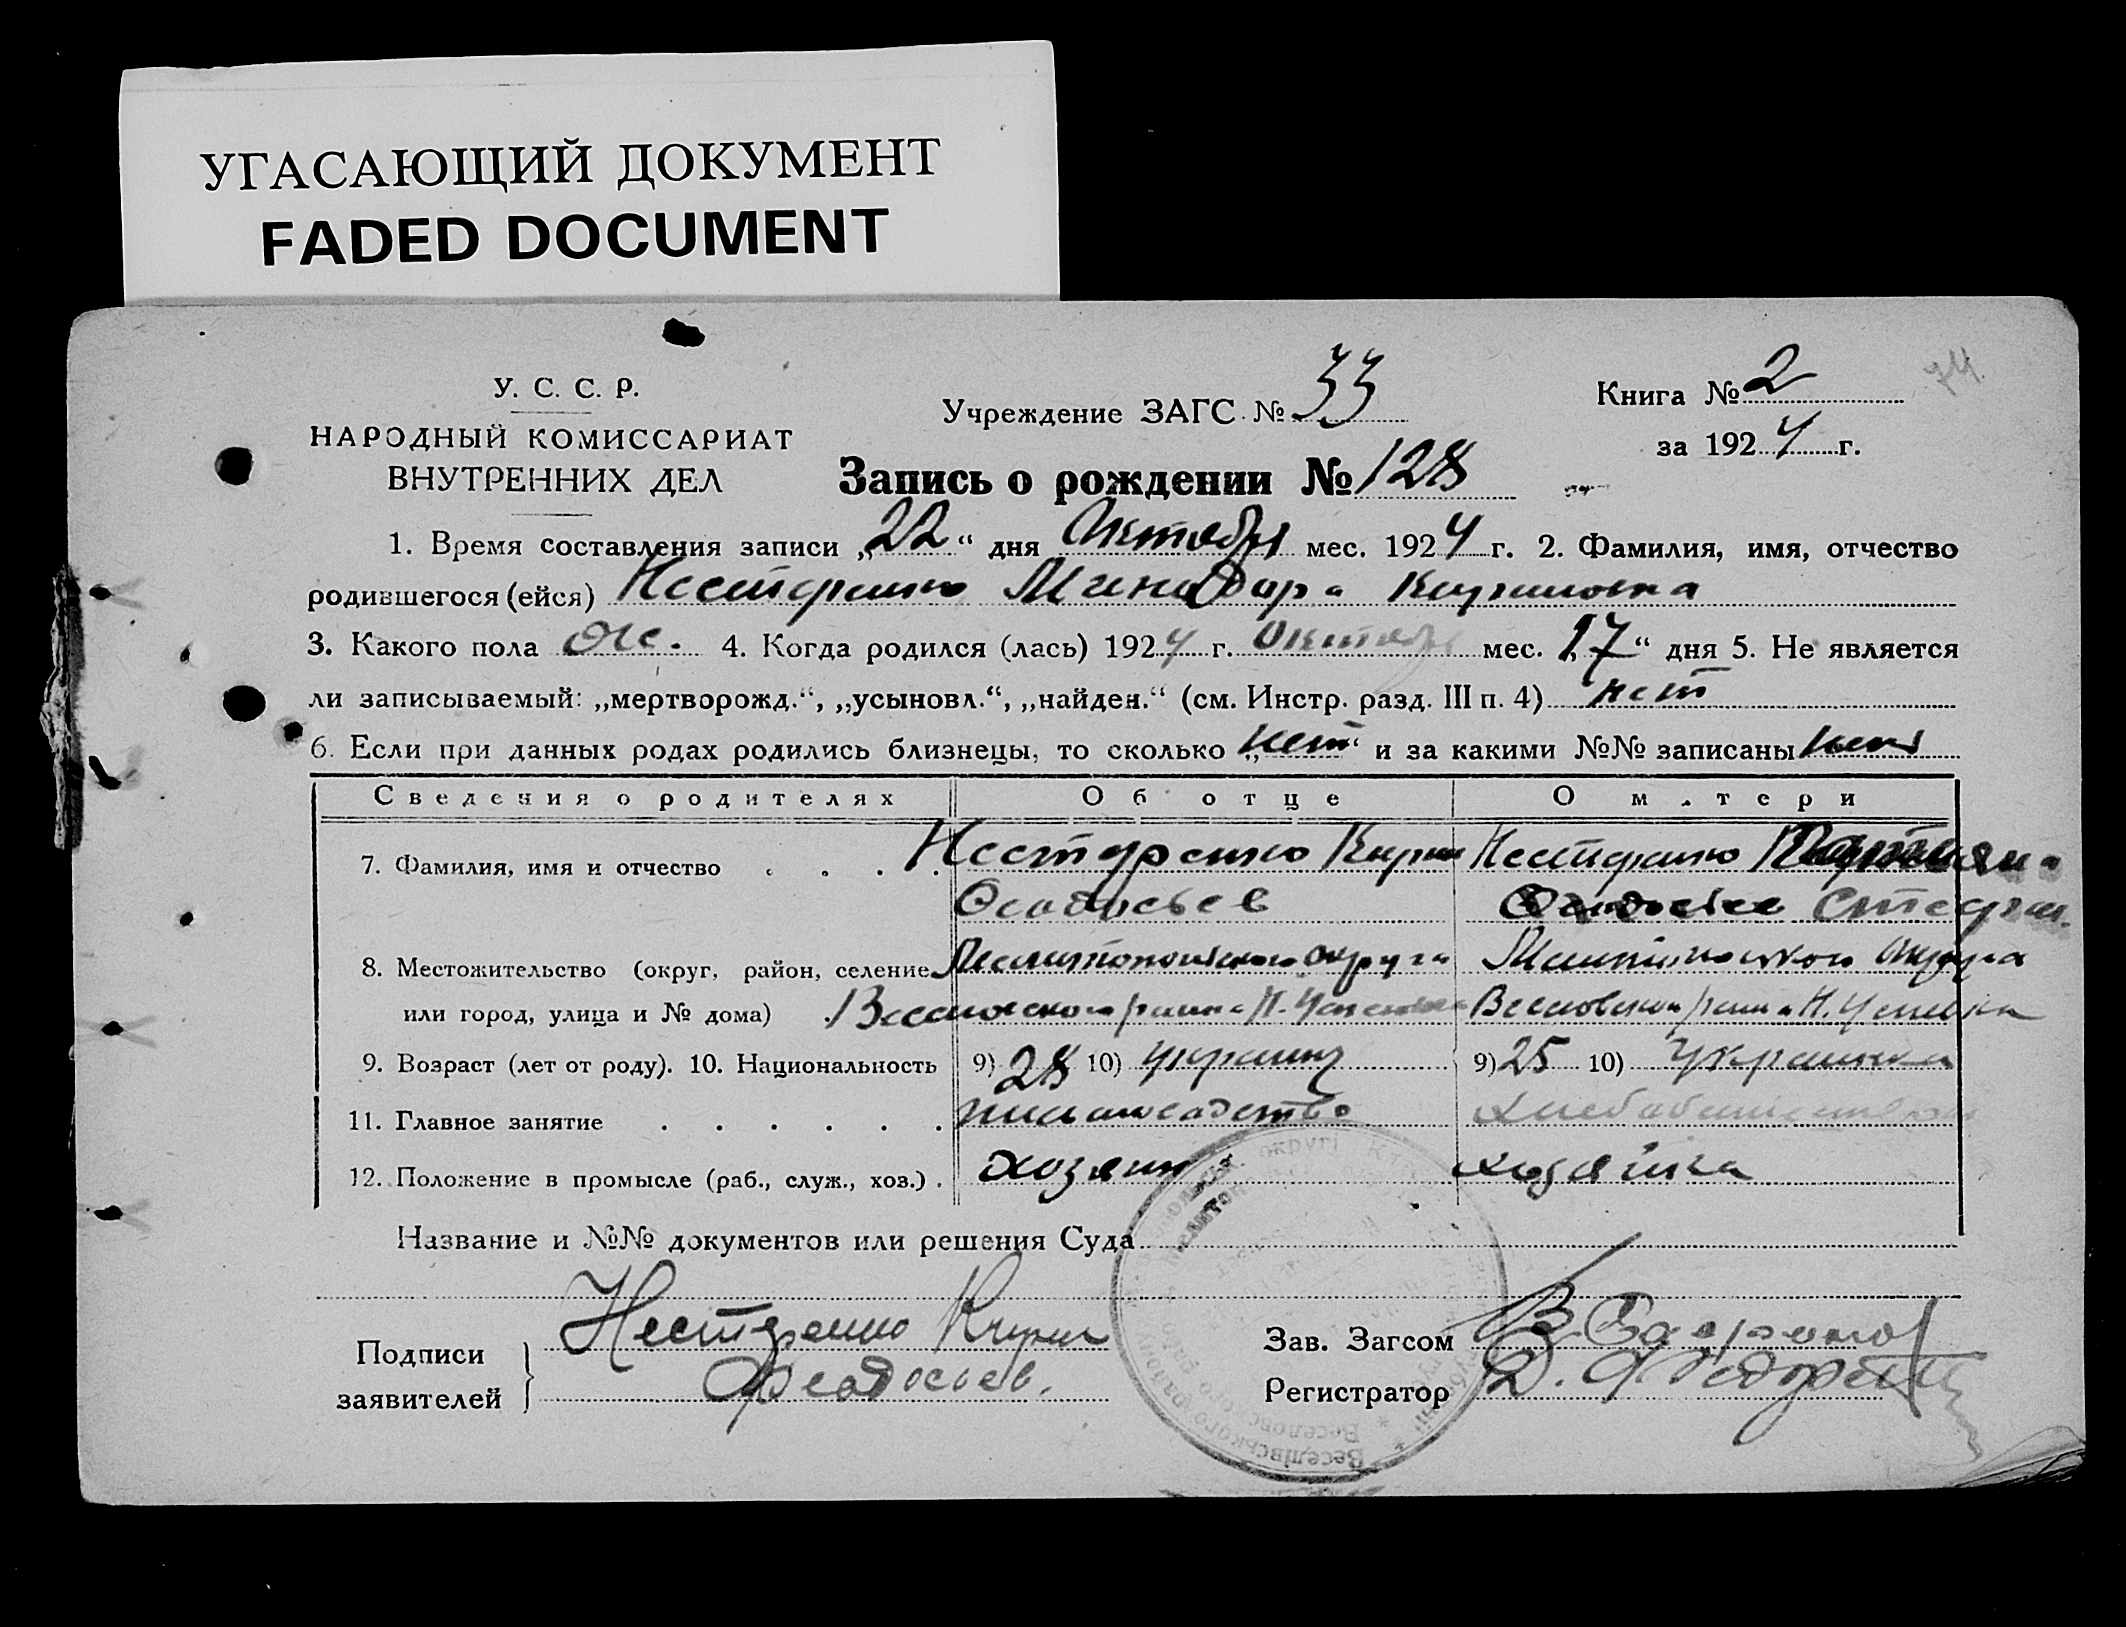 УГАСАЮЩИЙ ДОКУМЕНТ
FADED DOCUMENT
74.
У. С. С. Р.
НАРОДНЫЙ КОМИССАРИАТ
ВНУТРЕННИХ ДЕЛ
Учреждение ЗАГС № 33
Книга № 2
за 1924 г.
Запись о рождении № 128
1. Время составления записи „22“ дня Октября мес. 1924 г. 2. Фамилия, имя, отчество
родившегося (ейся) Нестеренко Минадора Кириловна
3. Какого пола ж. 4. Когда родился (лась) 1924 г. Октябр мес. „17“ дня 5. Не является
ли записываемый: „мертворожд.“, „усыновл.“, „найден.“ (см. Инстр. разд. III п. 4) нет
6. Если при данных родах родились близнецы, то сколько „нет“ и за какими №№ записаны нет
Сведения о родителях Об отце О матери
7. Фамилия, имя и отчество . . . . Нестеренко Кирил Нестеренко
Феодосьев Степан.
8. Местожительство (округ, район, селение Мелитопольского округа Мелитопольского Округа
или город, улица и № дома) Веселовского района Н. Успеновка Веселовского района Н. Успеновка
9. Возраст (лет от роду). 10. Национальность 9) 28 10) украинц 9) 25 10) украинка
11. Главное занятие . . . . . .
12. Положение в промысле (раб., служ., хоз.) . хозяин хозяйка
Название и №№ документов или решения Суда
Подписи
заявителей
Нестеренко Кирил
Феодосьев.
Зав. Загсом
Регистратор
Веселівського району